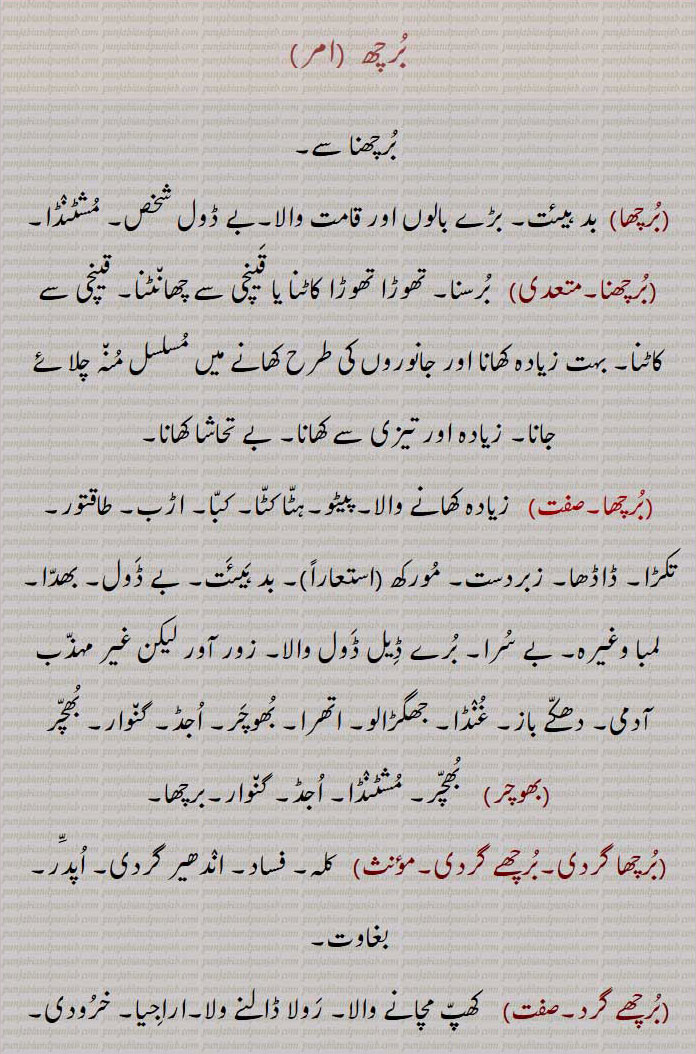 بُرچھ (امر)
بُرچھنا سے۔
(بُرچھا) بد ہیئت۔ بڑے بالوں اور قامت والا۔بے ڈول شخص۔ مُشٹنْڈا۔
(بُرچھنا۔متعدی) بُرسنا۔ تھوڑا تھوڑا کاٹنا یا قَینچی سے چھانْٹنا۔ قینچی سے
کاٹنا۔ بہت زیادہ کھانا اور جانوروں کی طرح کھانے میں مُسلسل مُنْہ چلائے
جانا۔ زیادہ اور تیزی سے کھانا۔ بے تحاشا کھانا۔
(بُرچھا۔صفت) زیادہ کھانے والا۔پیٹو۔ہٹّا کٹّا۔ کبّا۔ اڑب۔ طاقتور۔
تکڑا۔ ڈاڈھا۔ زبردست۔ مُورکھ (استعاراً)۔ بد ہَیئَت۔ بے ڈَول۔ بھدّا۔
لمبا وغیرہ۔ بے سُرا۔ بُرے ڈِیل ڈَول والا۔ زور آور لیکن غیر مہذّب
آدمی۔ دھکّے باز۔ غُنْڈا۔ جھگڑالو۔ اتھرا۔ بُھوچَر۔ اُجڈ۔ گنْوار۔ بُھچّر
(بھوچر) بُھچّر۔ مُشٹنْڈا۔ اُجڈ۔ گنْوار۔برچھا۔
(بُرچھا گردی۔بُرچھے گردی۔مؤنث) کلہ۔ فساد۔ انْدھیر گردی۔ اُپدِّر۔
بغاوت۔
(بُرچھے گرد۔صفت) کھپّ مچانے والا۔ رَولا ڈالنے ولا۔اراجیا۔ خرُودی۔